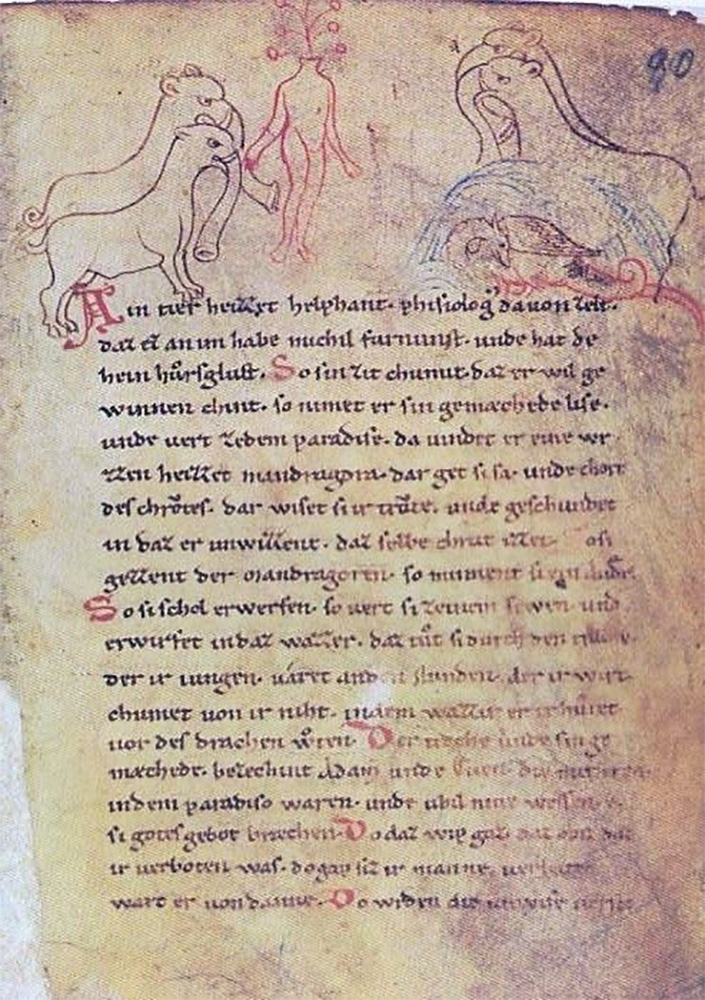 90
Ain tier heizzet helphant. phisiolog᾽ dauon zelt.
daz ez an im habe michil furnunst. unde hat de
hein hůrsglust. So sin zit chumit. daz er wil ge
winnen chint. so nimet er sin gemæchede lise.
unde uert zedem paradise. da uindet er eine wr
zzen heizzet mandragora. dar get si sa. unde chort
des chrůtes. dar wiset si ir trůte. unde geschundet
in daz er unwizzent. daz selbe chrut izzet. osi
gezzent der mandragoren. so nimment si
So si schol erwerfen. so uert si zeinem sewen. und
erwirfet in daz wazzer. daz tůt si durch den
der ir iungen. uâret an den stunden. der ir wirt
chumet uon ir niht. indem wazzer er ir hůtet
uor des drachen wůten. Der tiche unde sin ge
mæchede. bezechint Adam unde Euen. die
indem paradiso waren. unde ubil nine wessen. e.
si gotes gebot brachen. Do daz wip gaz daz obiz daz
ir uerboten was. do gap siz ir manne.
wart er uon danne. Do wrden